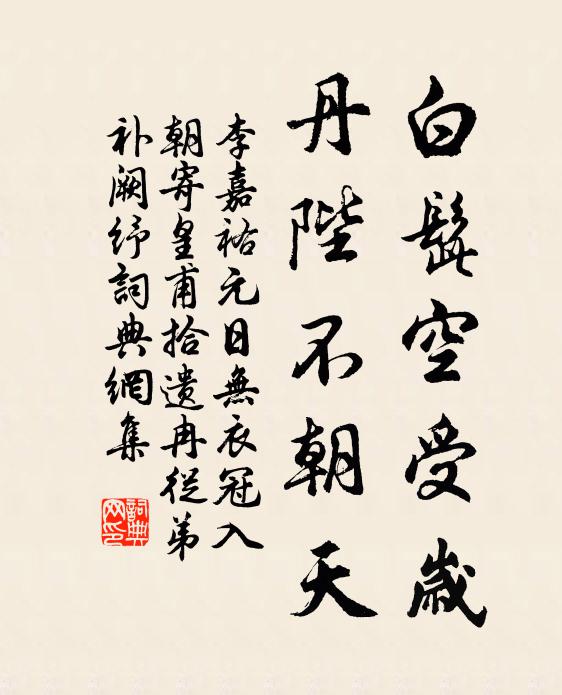 白髭空受歲
丹陛不朝天
李嘉祐元日無衣冠入
朝寄皇甫拾遺冉從弟
补阙纾詞典網集
詞典网印